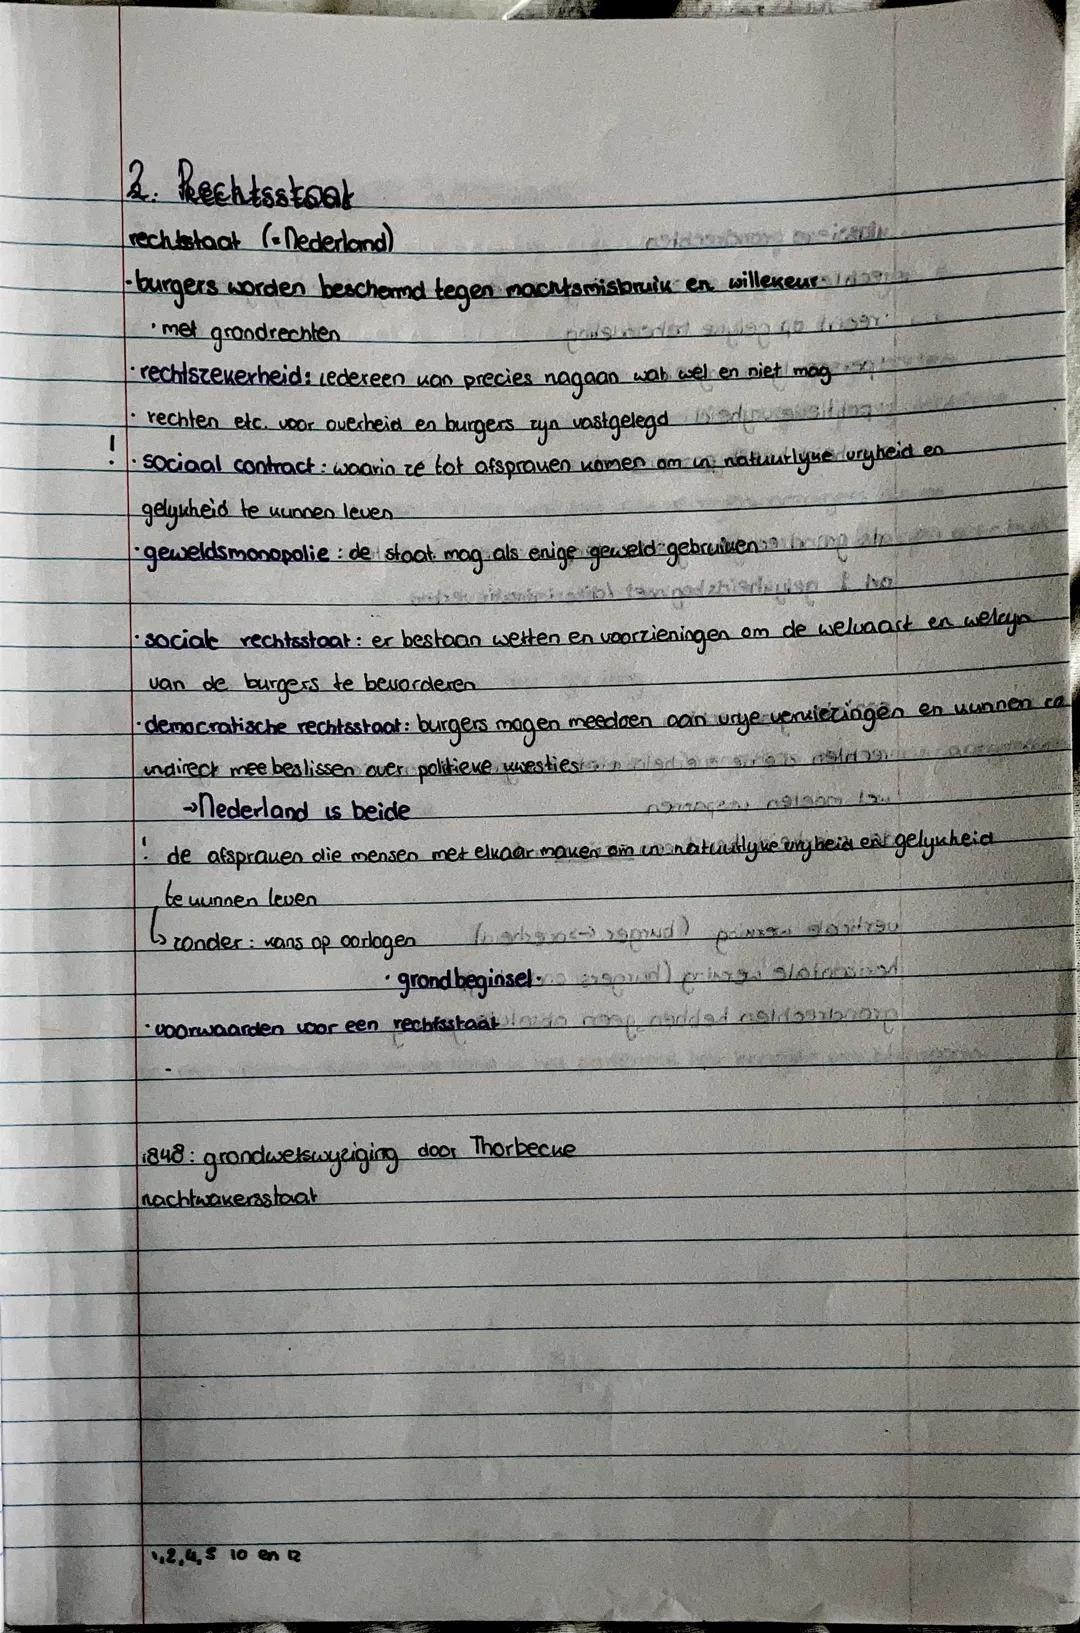 2. Rechtsstaat
rechtstaat (= Nederland)
-burgers worden beschermd tegen machtsmisbruik en willekeur
· met grondrechten
· rechtszekerheid: iedereen kan precies nagaan wat wel en niet mag
· rechten etc. voor overheid en burgers zijn vastgelegd
! · sociaal contract: waarin ze tot afspraken komen om in natuurlijke vrijheid en
gelijkheid te kunnen leven
· geweldsmonopolie: de staat mag als enige geweld gebruiken
· sociale rechtsstaat: er bestaan wetten en voorzieningen om de welvaart en welzijn
van de burgers te bevorderen
· democratische rechtsstaat: burgers mogen meedoen aan vrije verkiezingen en kunnen zo
indirect meebeslissen over politieke kwesties
→ Nederland is beide
! de afspraken die mensen met elkaar maken om in natuurlijke vrijheid en gelijkheid
te kunnen leven
↳ zonder: kans op oorlogen
· grondbeginsel ·
· voorwaarden voor een rechtsstaat
-
1848: grondwetswijziging door Thorbecke
nachtwakersstaat
1,2,4,5 10 en 12